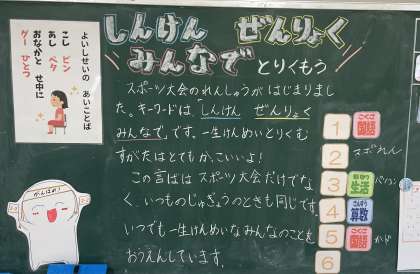 よいしせいの あいことば
こし ピン
あし ペタ
おなかと せ中に
グー ひとつ
しんけん ぜんりょく
みんなで とりくもう
スポーツ大会のれんしゅうが はじまりまし
た。キーワードは「しんけん ぜんりょく
みんなで」です。一生けんめいとりくむ
すがたはとてもかっこいいよ!
この言ばは スポーツ大会だけでな
く、いつものじゅぎょうのときも同じです。
いつでも一生けんめいなみんなのことを
おうえんしています。
がんばれ!
1 こくご 国語
2 スポれん
3 せいかつ 生活 パソコン
4 さんすう 算数
5 こくご 国語 かんド
6